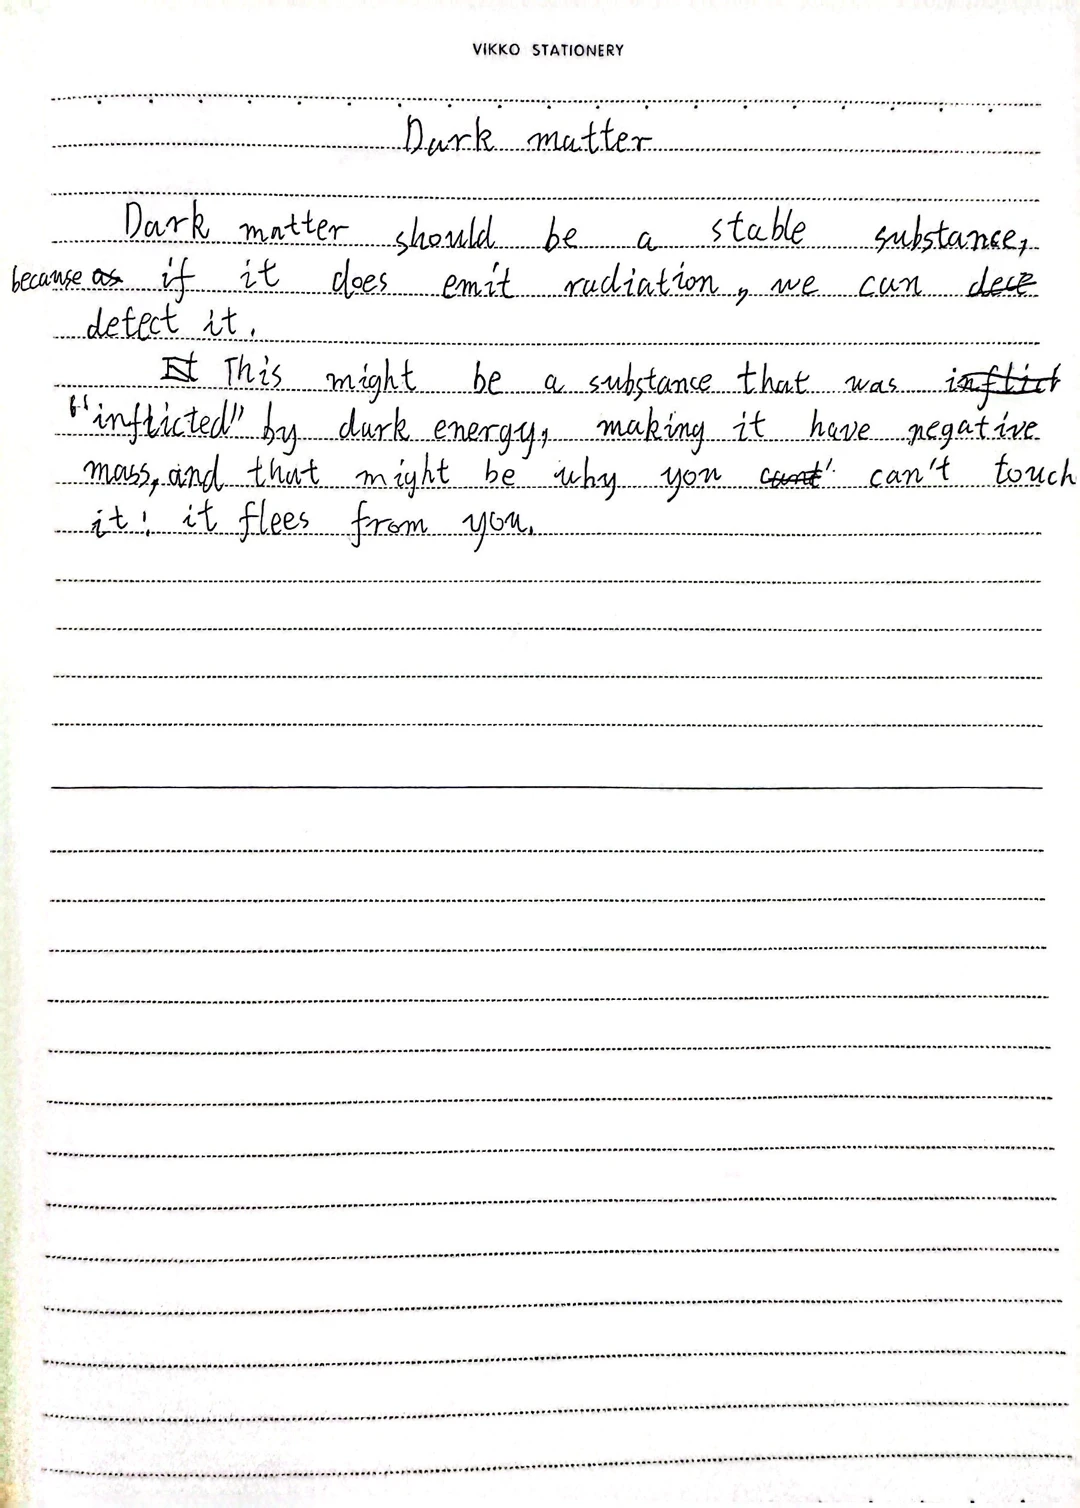 VIKKO STATIONERY
Dark matter
Dark matter should be a stable substance,
because as if it does emit radiation, we can dece
detect it.
It This might be a substance that was inflict
"inflicted" by dark energy, making it have negative
mass, and that might be why you cant' can't touch
it: it flees from you.